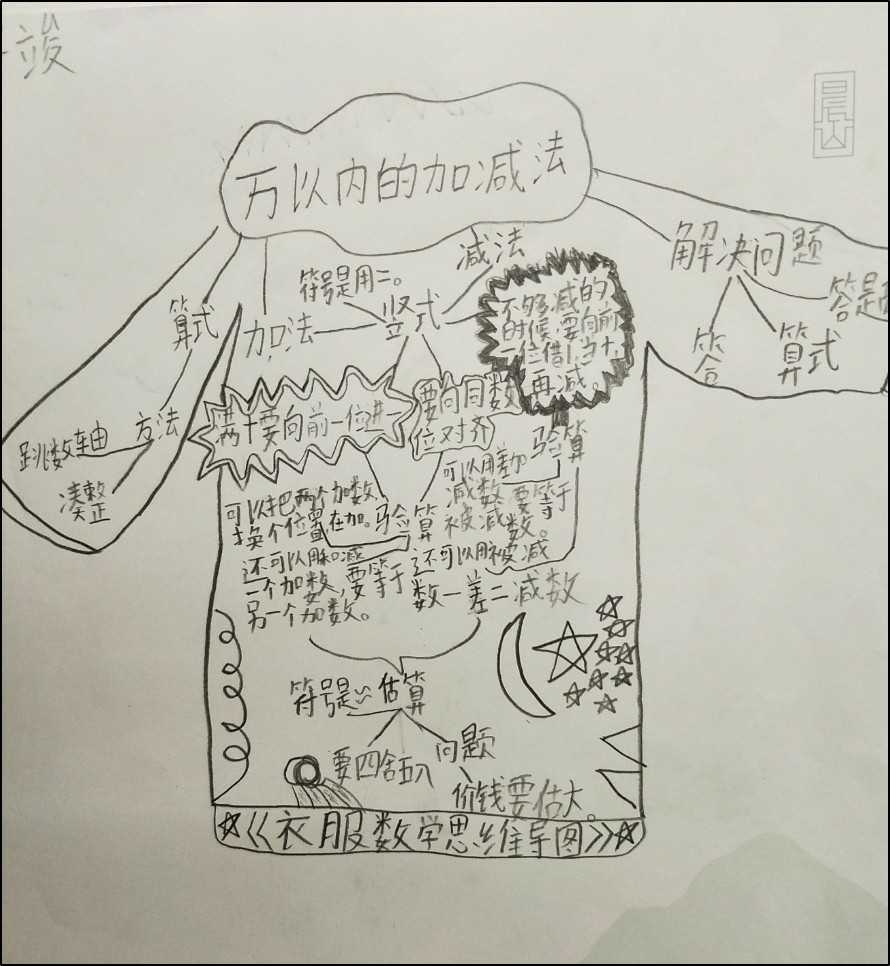 竣
晨山
万以内的加减法
减法
符号是用二。
加法
竖式
算式
方法
跳数轴
凑整
解决问题
答题
答
算式
不够减的
时候,要向前
一位借1当十,
再减。
满十要向前一位进一
要向同数
位对齐
验算
可以用差加
减数要等于
被减数。
还可以用被减
数一差二减数
可以把两个加数,
换个位置,在加。
验算
还可以用和减
一个加数,要等于
另一个加数。
符号是≈
估算
要四舍五入
问题
价钱要估大。
☆《衣服数学思维导图》☆